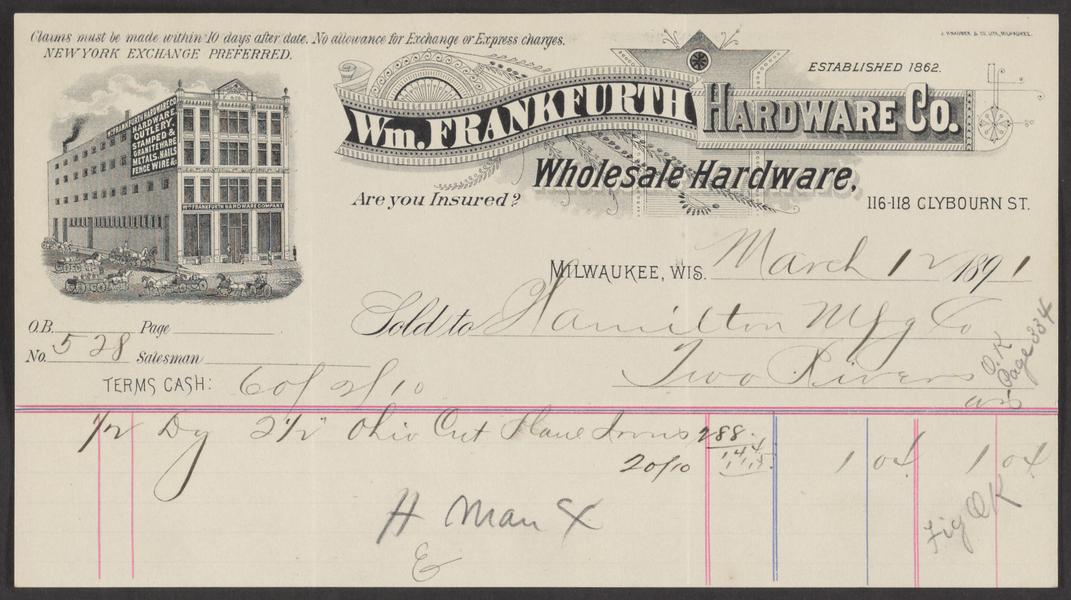 Claims must be made within 10 days after date. No allowance for Exchange or Express charges.
NEW YORK EXCHANGE PREFERRED.
J. KNAUBER & CO. LITH. MILWAUKEE.
ESTABLISHED 1862.
Wm. FRANKFURTH HARDWARE CO.
Wholesale Hardware,
Are you Insured?
116-118 CLYBOURN ST.
Wm FRANKFURTH HARDWARE CO.
HARDWARE,
CUTLERY,
STAMPED &
GRANITEWARE
METALS, NAILS
FENCE WIRE &c
Wm FRANKFURTH HARDWARE COMPANY
MILWAUKEE, WIS. March 12 1891
Sold to Hamilton Mfg Co
Two Rivers
O.K
Page 334
O.B. Page
No. 528 Salesman
TERMS CASH: 60/ 2/10
1/2 Dz 2 1/2 Ohio Cut Plane Irons 288
144
20/10 1 04 1 04
H Man X
Fig OK
&